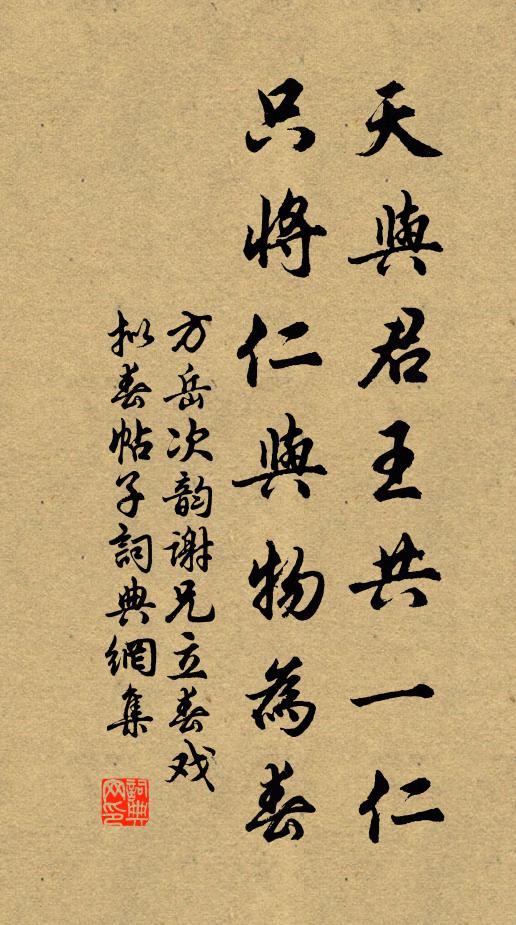 天與君王共一仁
只將仁與物為春
方岳次韵謝兄立春戏
拟春帖子詞典網集
詞典
网印